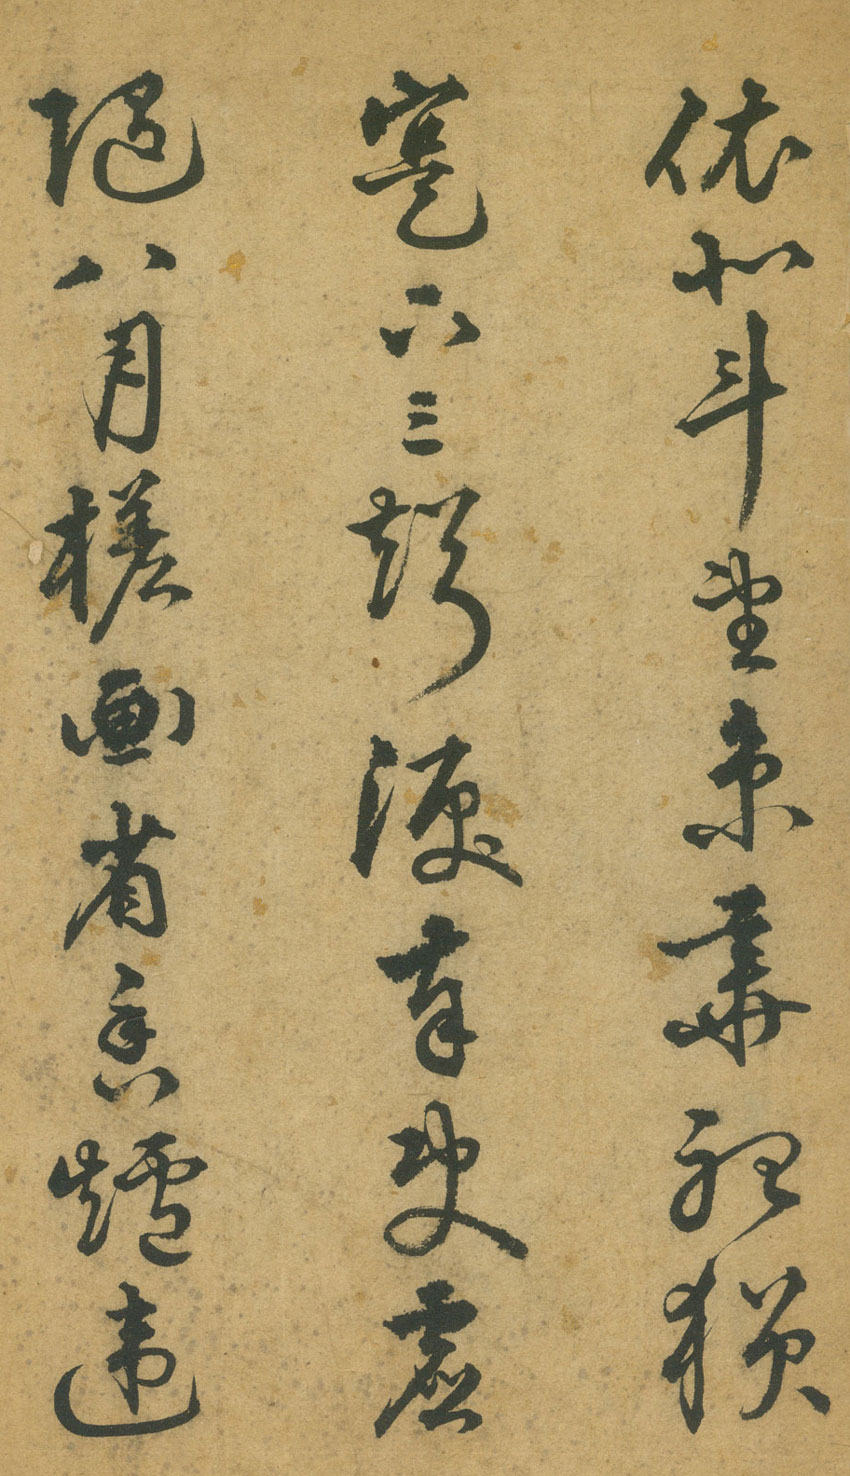 依北斗望京華聽猿
寔下三聲淚奉使虛
隨八月槎画省香爐違